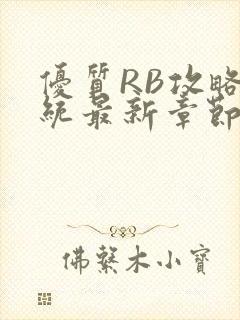 優質RB攻略
統最新章節
佛繫木小寶